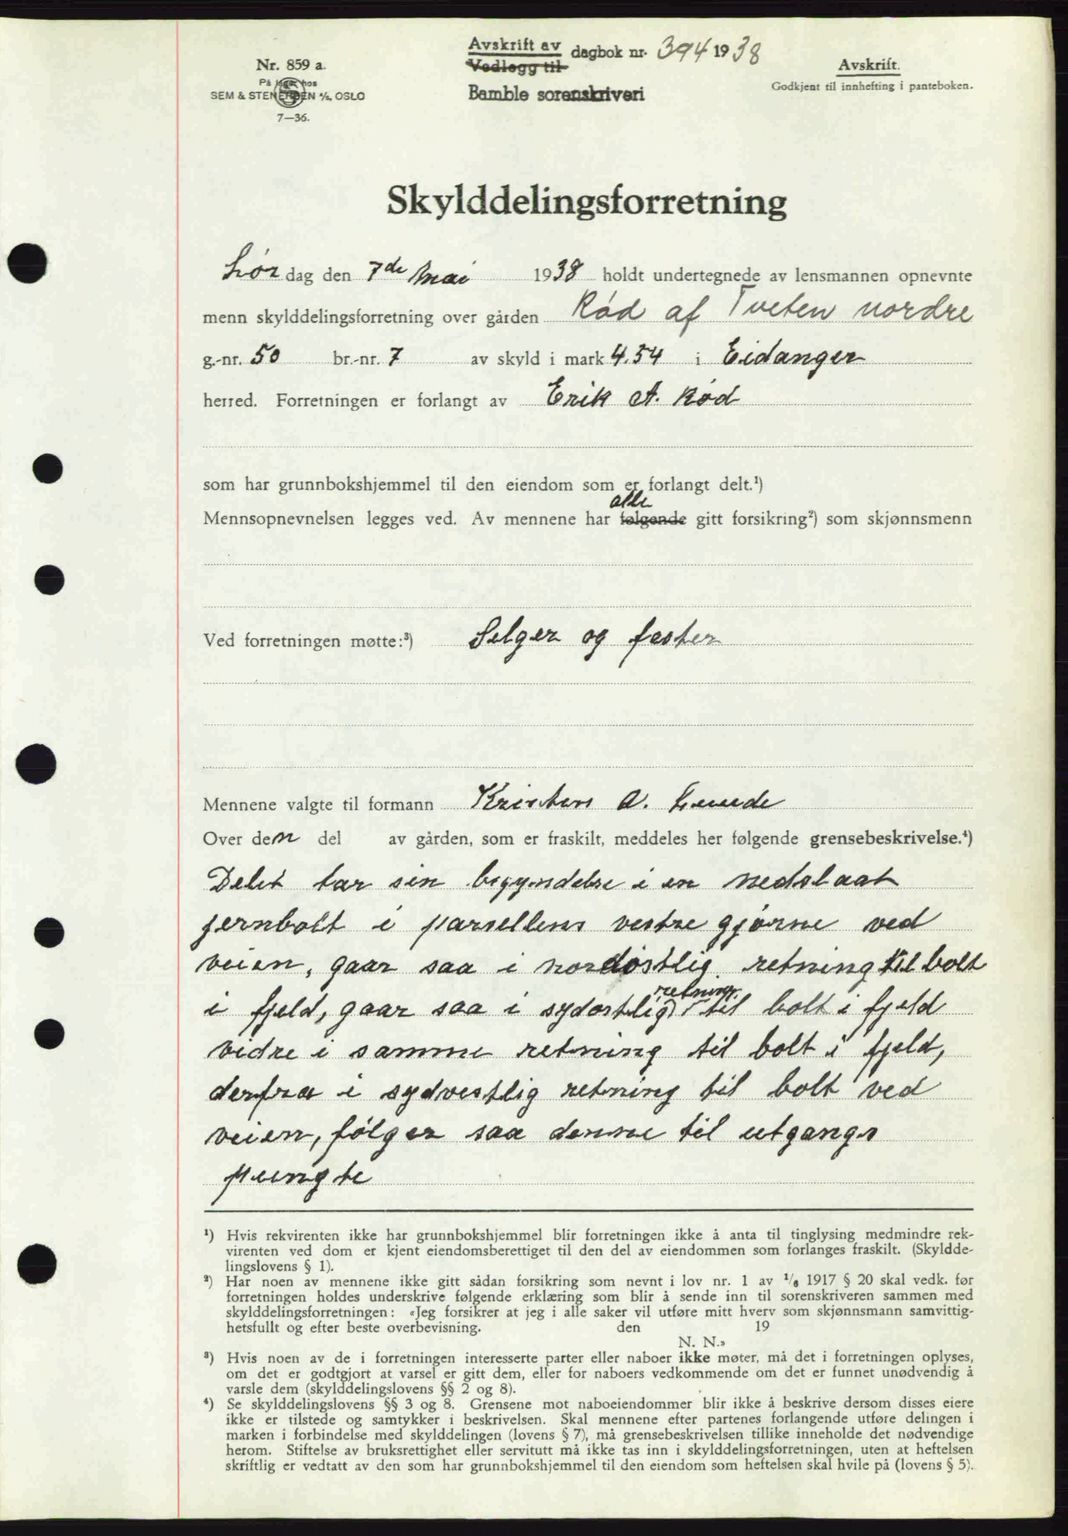 Avskrift av dagbok nr. 394 1938
Vedlegg til
Bamble sorenskriveri
Nr. 859 a.
På lager hos
SEM & STENERSEN A/S, OSLO
7—36.
Avskrift.
Godkjent til innhefting i panteboken.
Skylddelingsforretning
Lør dag den 7de Mai 1938 holdt undertegnede av lensmannen opnevnte
menn skylddelingsforretning over gården Rød af Tveten nordre
g.-nr. 50 br.-nr. 7 av skyld i mark 4.54 i Eidanger
herred. Forretningen er forlangt av Erik A. Rød
som har grunnbokshjemmel til den eiendom som er forlangt delt.¹)
alle
Mennsopnevnelsen legges ved. Av mennene har følgende gitt forsikring²) som skjønnsmenn
Ved forretningen møtte:³) Selger og fester
Mennene valgte til formann Kristen A. Lunde
Over den del av gården, som er fraskilt, meddeles her følgende grensebeskrivelse.⁴)
Delet tar sin begyndelse i en nedslaat
jernbolt i parsellens vestre gjørne ved
veien, gaar saa i nordøstlig retning til bolt
i fjeld, gaar saa i sydøstlig retning til bolt i fjeld
vidre i samme retning til bolt i fjeld,
derfra i sydvestlig retning til bolt ved
veien, følger saa denne til utgangs
pungte
¹) Hvis rekvirenten ikke har grunnbokshjemmel blir forretningen ikke å anta til tinglysing medmindre rek-
virenten ved dom er kjent eiendomsberettiget til den del av eiendommen som forlanges fraskilt. (Skyldde-
lingslovens § 1).
²) Har noen av mennene ikke gitt sådan forsikring som nevnt i lov nr. 1 av ¹/₆ 1917 § 20 skal vedk. før
forretningen holdes underskrive følgende erklæring som blir å sende inn til sorenskriveren sammen med
skylddelingsforretningen: «Jeg forsikrer at jeg i alle saker vil utføre mitt hverv som skjønnsmann samvittig-
hetsfullt og efter beste overbevisning. den 19
N. N.»
³) Hvis noen av de i forretningen interesserte parter eller naboer ikke møter, må det i forretningen oplyses,
om det er godtgjort at varsel er gitt dem, eller for naboers vedkommende om det er funnet unødvendig å
varsle dem (skylddelingslovens §§ 2 og 8).
⁴) Se skylddelingslovens §§ 3 og 8. Grensene mot naboeiendommer blir ikke å beskrive dersom disses eiere
ikke er tilstede og samtykker i beskrivelsen. Skal mennene efter partenes forlangende utføre delingen i
marken i forbindelse med skylddelingen (lovens § 7), må grensebeskrivelsen tillike inneholde det nødvendige
herom. Stiftelse av bruksrettighet eller servitutt må ikke tas inn i skylddelingsforretningen, uten at heftelsen
skriftlig er vedtatt av den som har grunnbokshjemmel til den eiendom som heftelsen skal hvile på (lovens § 5).